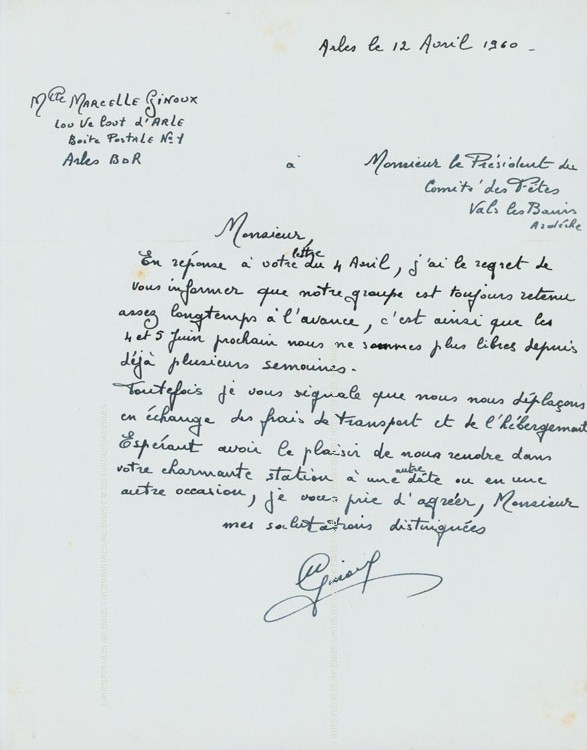 Arles le 12 Avril 1960 -
Melle MARCELLE GINOUX
Lou Velout d'ARLE
Boite Postale No 1
Arles BdR
à
Monsieur le Président du
Comité des Fêtes
Vals les Bains
Ardèche
Monsieur,
En réponse à votre lettre du 4 Avril, j'ai le regret de
vous informer que notre groupe est toujours retenu
assez longtemps à l'avance, c'est ainsi que les
4 et 5 Juin prochain nous ne sommes plus libres depuis
déjà plusieurs semaines.
Toutefois je vous signale que nous nous déplaçons
en échange des frais de transport et de l'hébergement
Espérant avoir le plaisir de nous rendre dans
votre charmante station à une autre date ou en une
autre occasion, je vous prie d'agréer, Monsieur
mes salutations distinguées
MGinoux